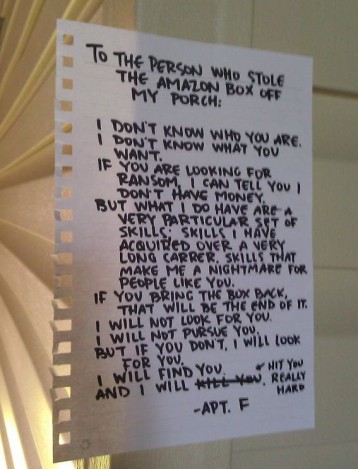 TO THE PERSON WHO STOLE
THE AMAZON BOX OFF
MY PORCH:
I DON'T KNOW WHO YOU ARE.
I DON'T KNOW WHAT YOU
WANT.
IF YOU ARE LOOKING FOR
RANSOM, I CAN TELL YOU I
DON'T HAVE MONEY.
BUT WHAT I DO HAVE ARE A
VERY PARTICULAR SET OF
SKILLS; SKILLS I HAVE
ACQUIRED OVER A VERY
LONG CARRER. SKILLS THAT
MAKE ME A NIGHTMARE FOR
PEOPLE LIKE YOU.
IF YOU BRING THE BOX BACK,
THAT WILL BE THE END OF IT.
I WILL NOT LOOK FOR YOU.
I WILL NOT PURSUE YOU.
BUT IF YOU DON'T, I WILL LOOK
FOR YOU.
I WILL FIND YOU.
AND I WILL KILL YOU. HIT YOU
REALLY
HARD
-APT. F